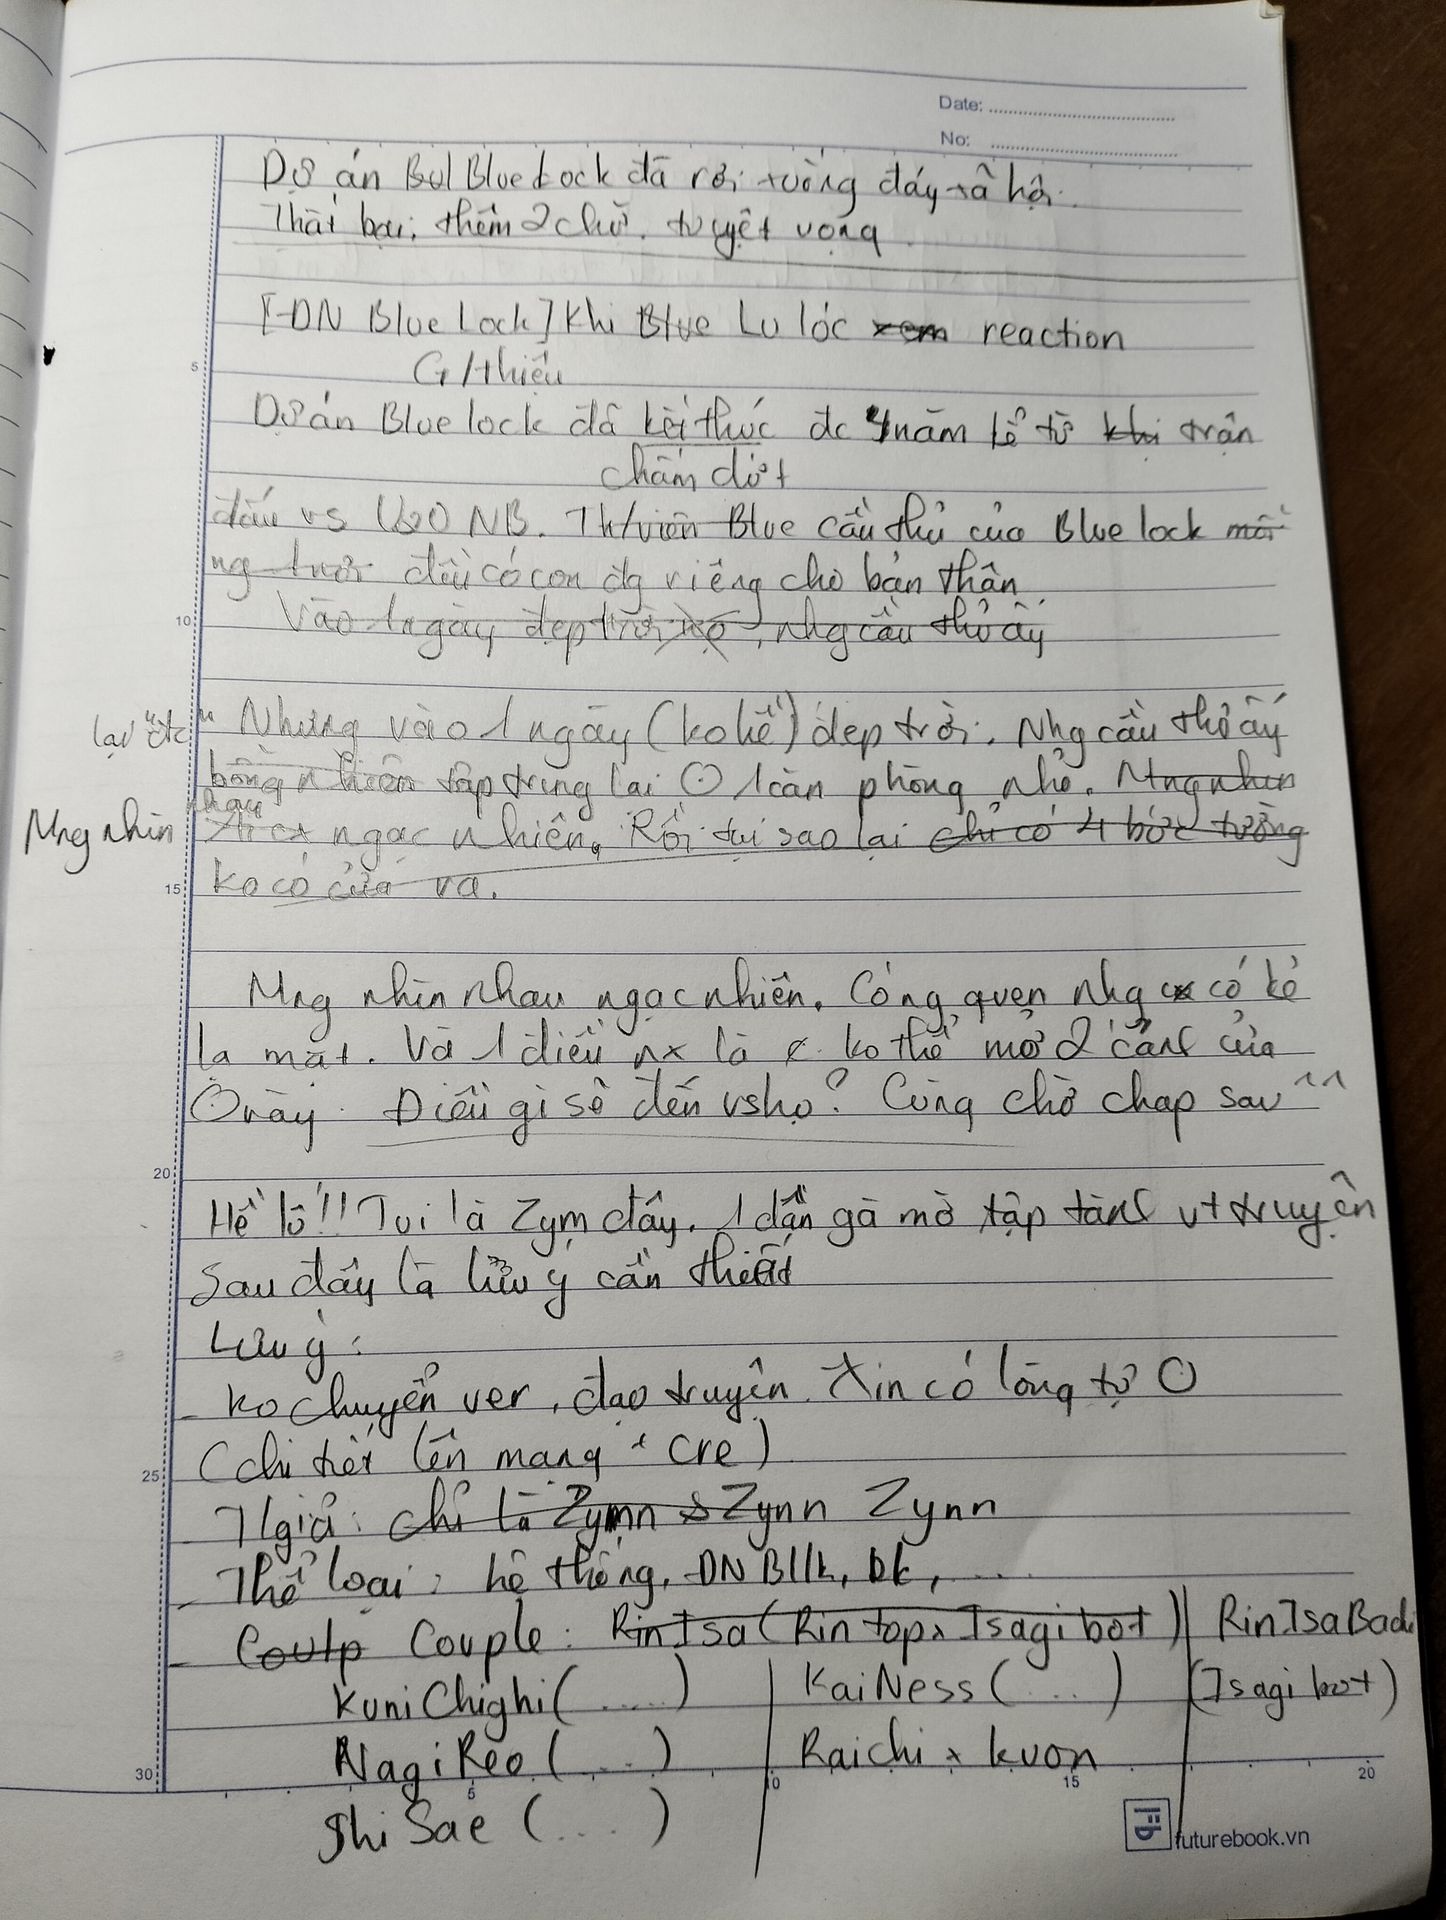 Date:
No:
Dự án Bul Blue Lock đã rơi xuống đáy xã hội.
Thất bại, thêm 2 chữ. tuyệt vọng
[ĐN Blue lock] Khi Blue Lu lóc xem reaction
G/thiệu
Dự án Blue lock đã kết thúc đc 4 năm kể từ khi trận
chấm dứt
đấu vs U20 NB. Th/viên Blue cầu thủ của Blue lock mỗi
ng đều có con đg riêng cho bản thân
Vào 1 ngày đẹp trời, nhg cầu thủ ấy
"Nhưng vào 1 ngày (ko hề) đẹp trời. Nhg cầu thủ ấy
lại đc
bỗng nhiên tập trung lại ở 1 căn phòng nhỏ. Mng nhìn
Mng nhìn nhau ngạc nhiên. Rồi tại sao lại chỉ có 4 bức tường
ko có cửa va.
Mng nhìn nhau ngạc nhiên. Có ng quen nhg cx có kẻ
lạ mặt. Và 1 điều nx là ko thể mở cửa
Ở này. Điều gì sẽ đến vs họ? Cùng chờ chap sau ^^
Hế lô!! Tui là Zym đây. 1 dân gà mờ tập tành vt truyện
Sau đây là lưu ý cần thiết
Lưu ý:
- Ko chuyển ver, đạo truyện. Xin có lòng tự O
(chi tiết lên mạng + cre)
- T/giả: chỉ là Zymn Zynn Zynn
- Thể loại: hệ thống, ĐN Bllk, bl, ....
- Coulp Couple: RinIsa (Rin top x Isagi bot) | RinIsaBachi
KuniChighi (.....) | KaiNess (....) | (Isagi bot)
NagiReo (....) | Raichi x kuon
ShiSae (....)
5
10
15
20
25
30
5
10
15
20
futurebook.vn